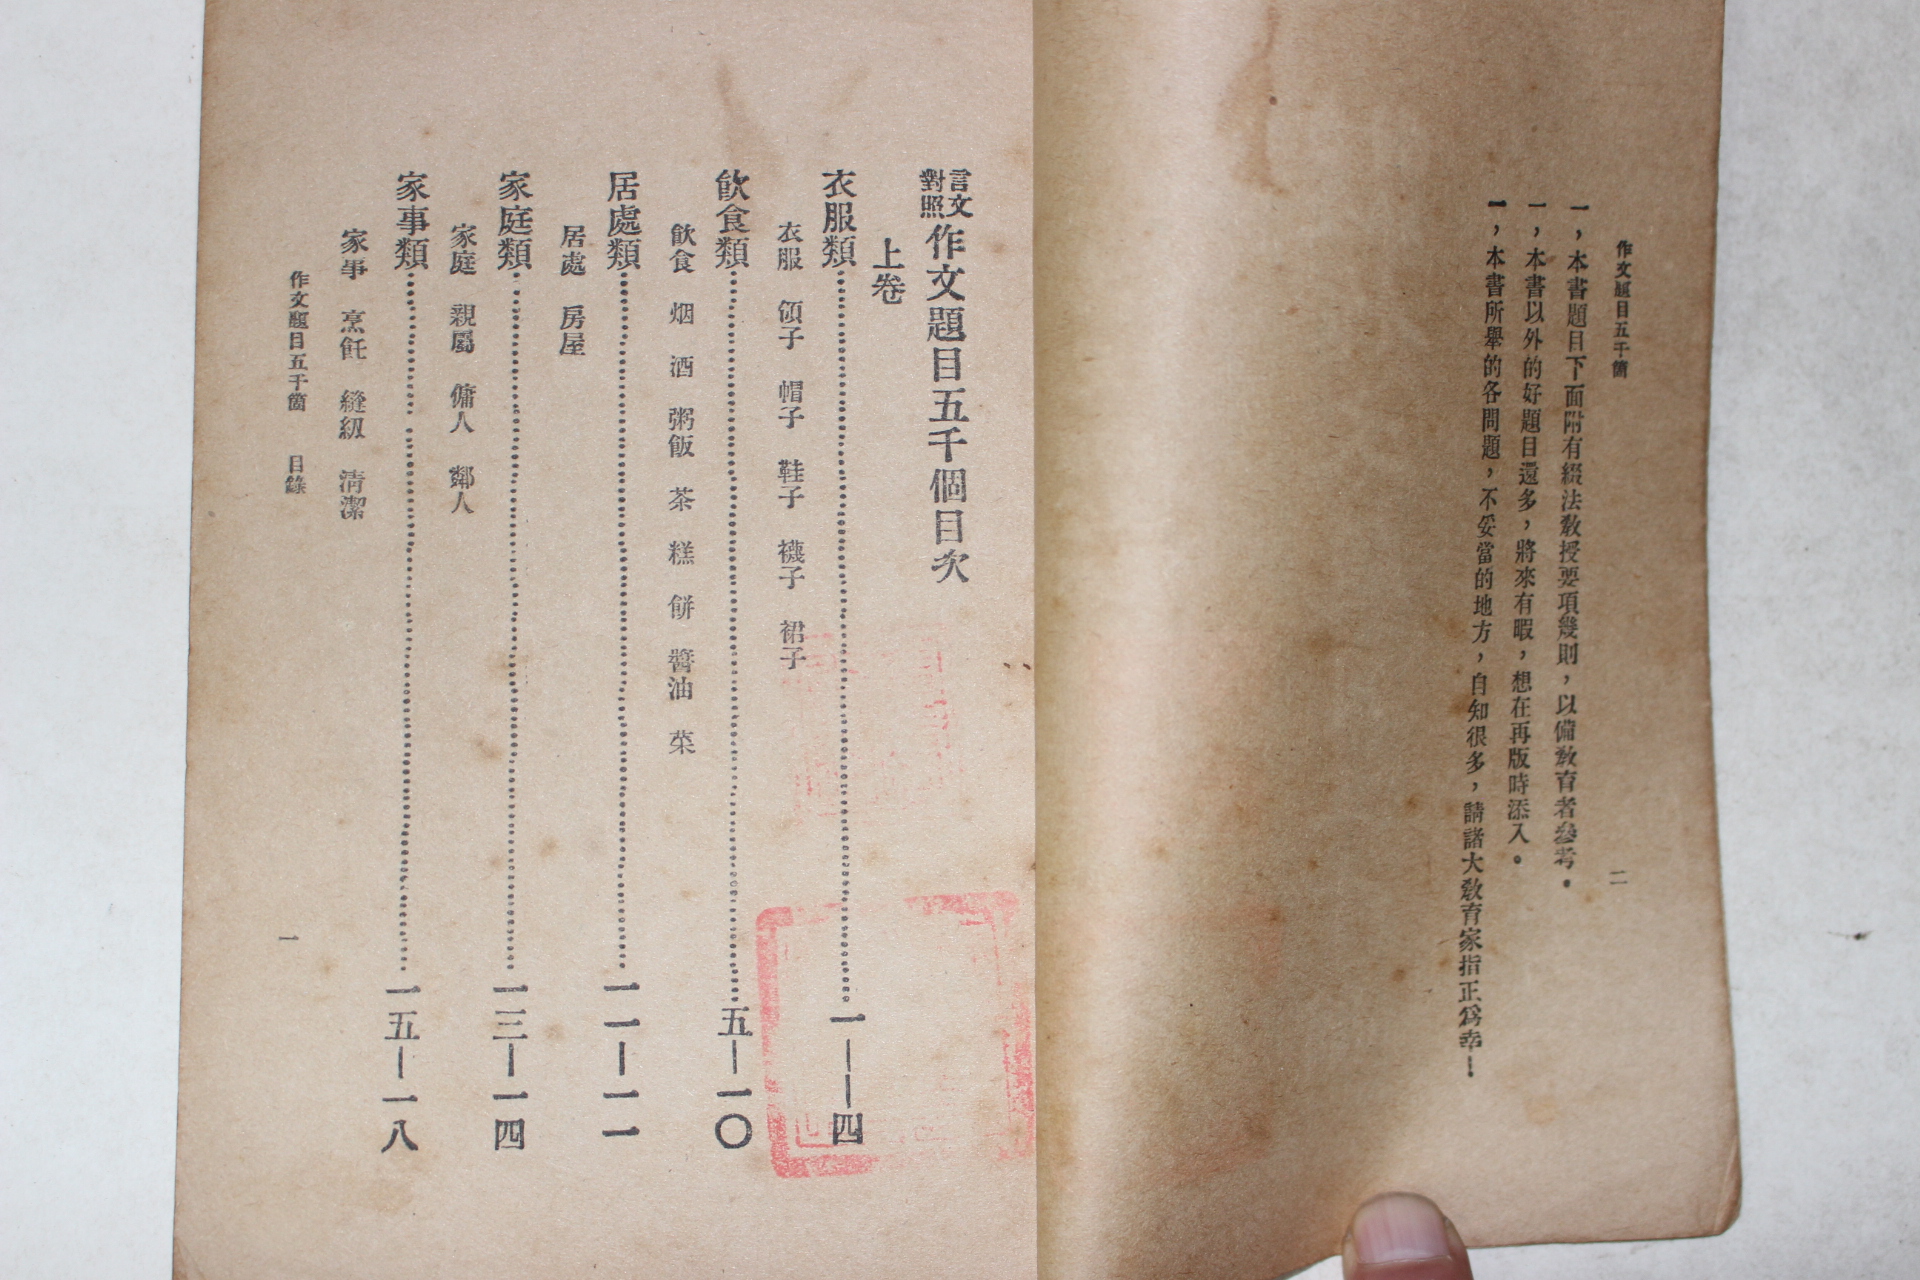 作文題目五千箇 二
一，本書題目下面附有綴法教授要項幾則，以備教育者參考。
一，本書以外的好題目還多，將來有暇，想在再版時添入。
一，本書所舉的各問題，不妥當的地方，自知很多，請諸大教育家指正爲幸！
言文對照作文題目五千個目次
上卷
衣服類……一——四
衣服 領子 帽子 鞋子 襪子 裙子
飲食類……五—一〇
飲食 烟 酒 粥飯 茶 糕 餅 醬油 菜
居處類……一一—一一
居處 房屋
家庭類……一三—一四
家庭 親屬 傭人 鄰人
家事類……一五—一八
家事 烹飪 縫紉 清潔
作文題目五千箇 目錄 一